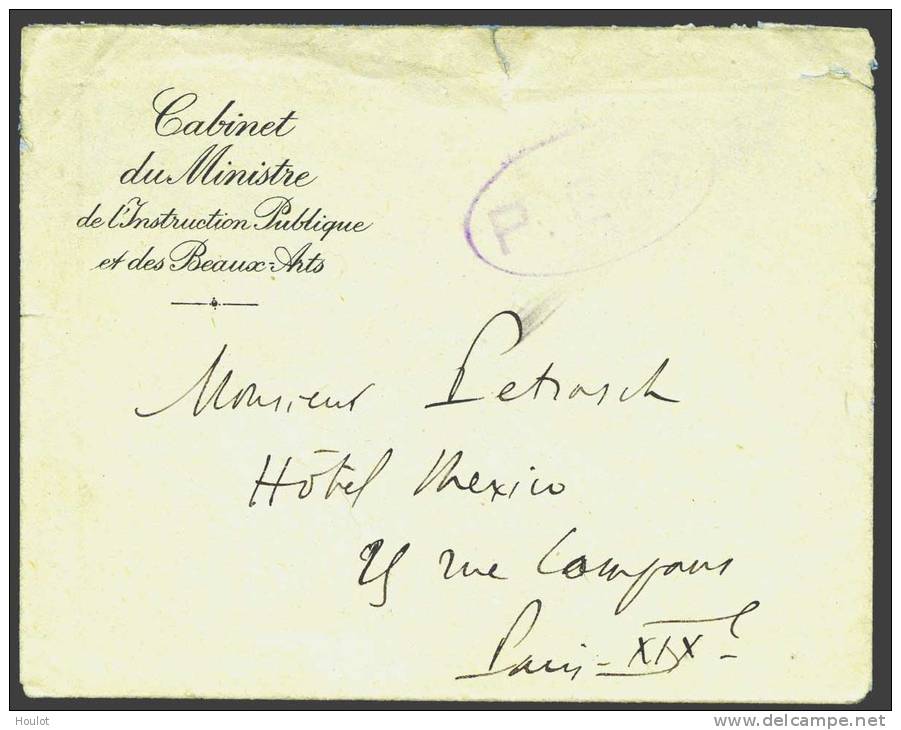 Cabinet
du Ministre
de l'Instruction Publique
et des Beaux-Arts
P.
Monsieur Petrasch
Hôtel Mexico
25 rue Compans
Paris - XIXe -
Houlot
www.delcampe.net